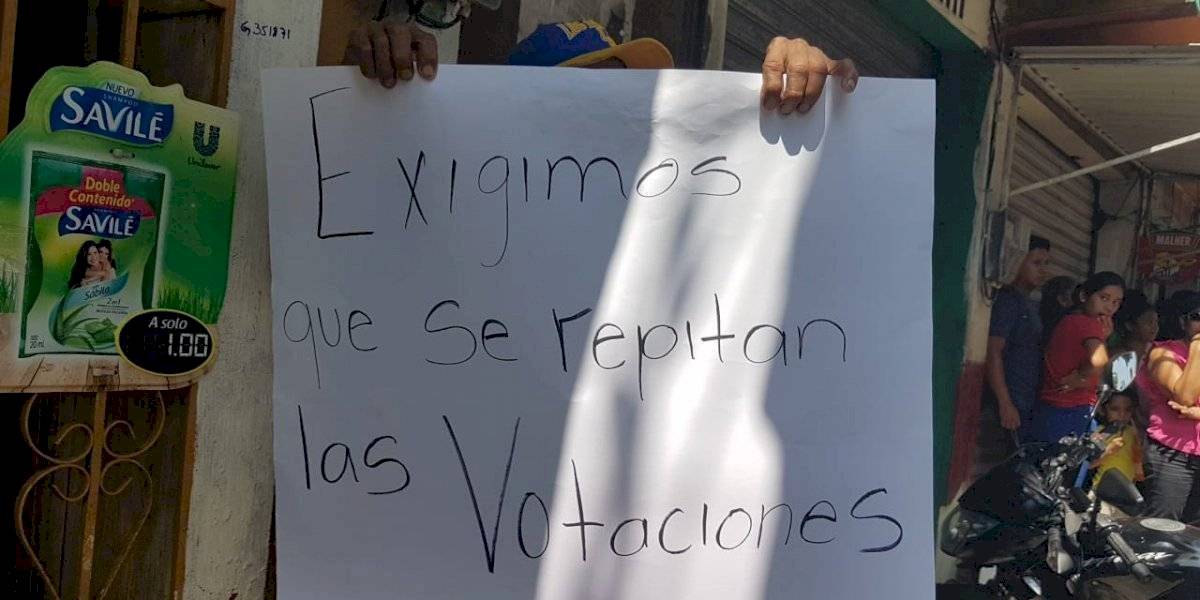 G351871
NUEVO
SHAMPOO
SAVILÉ
Unilever
Doble
Contenido
SAVILÉ
Sábila
2 en 1
20 ml
A solo
1.00
Exigimos
que se repitan
las Votaciones
MALHER